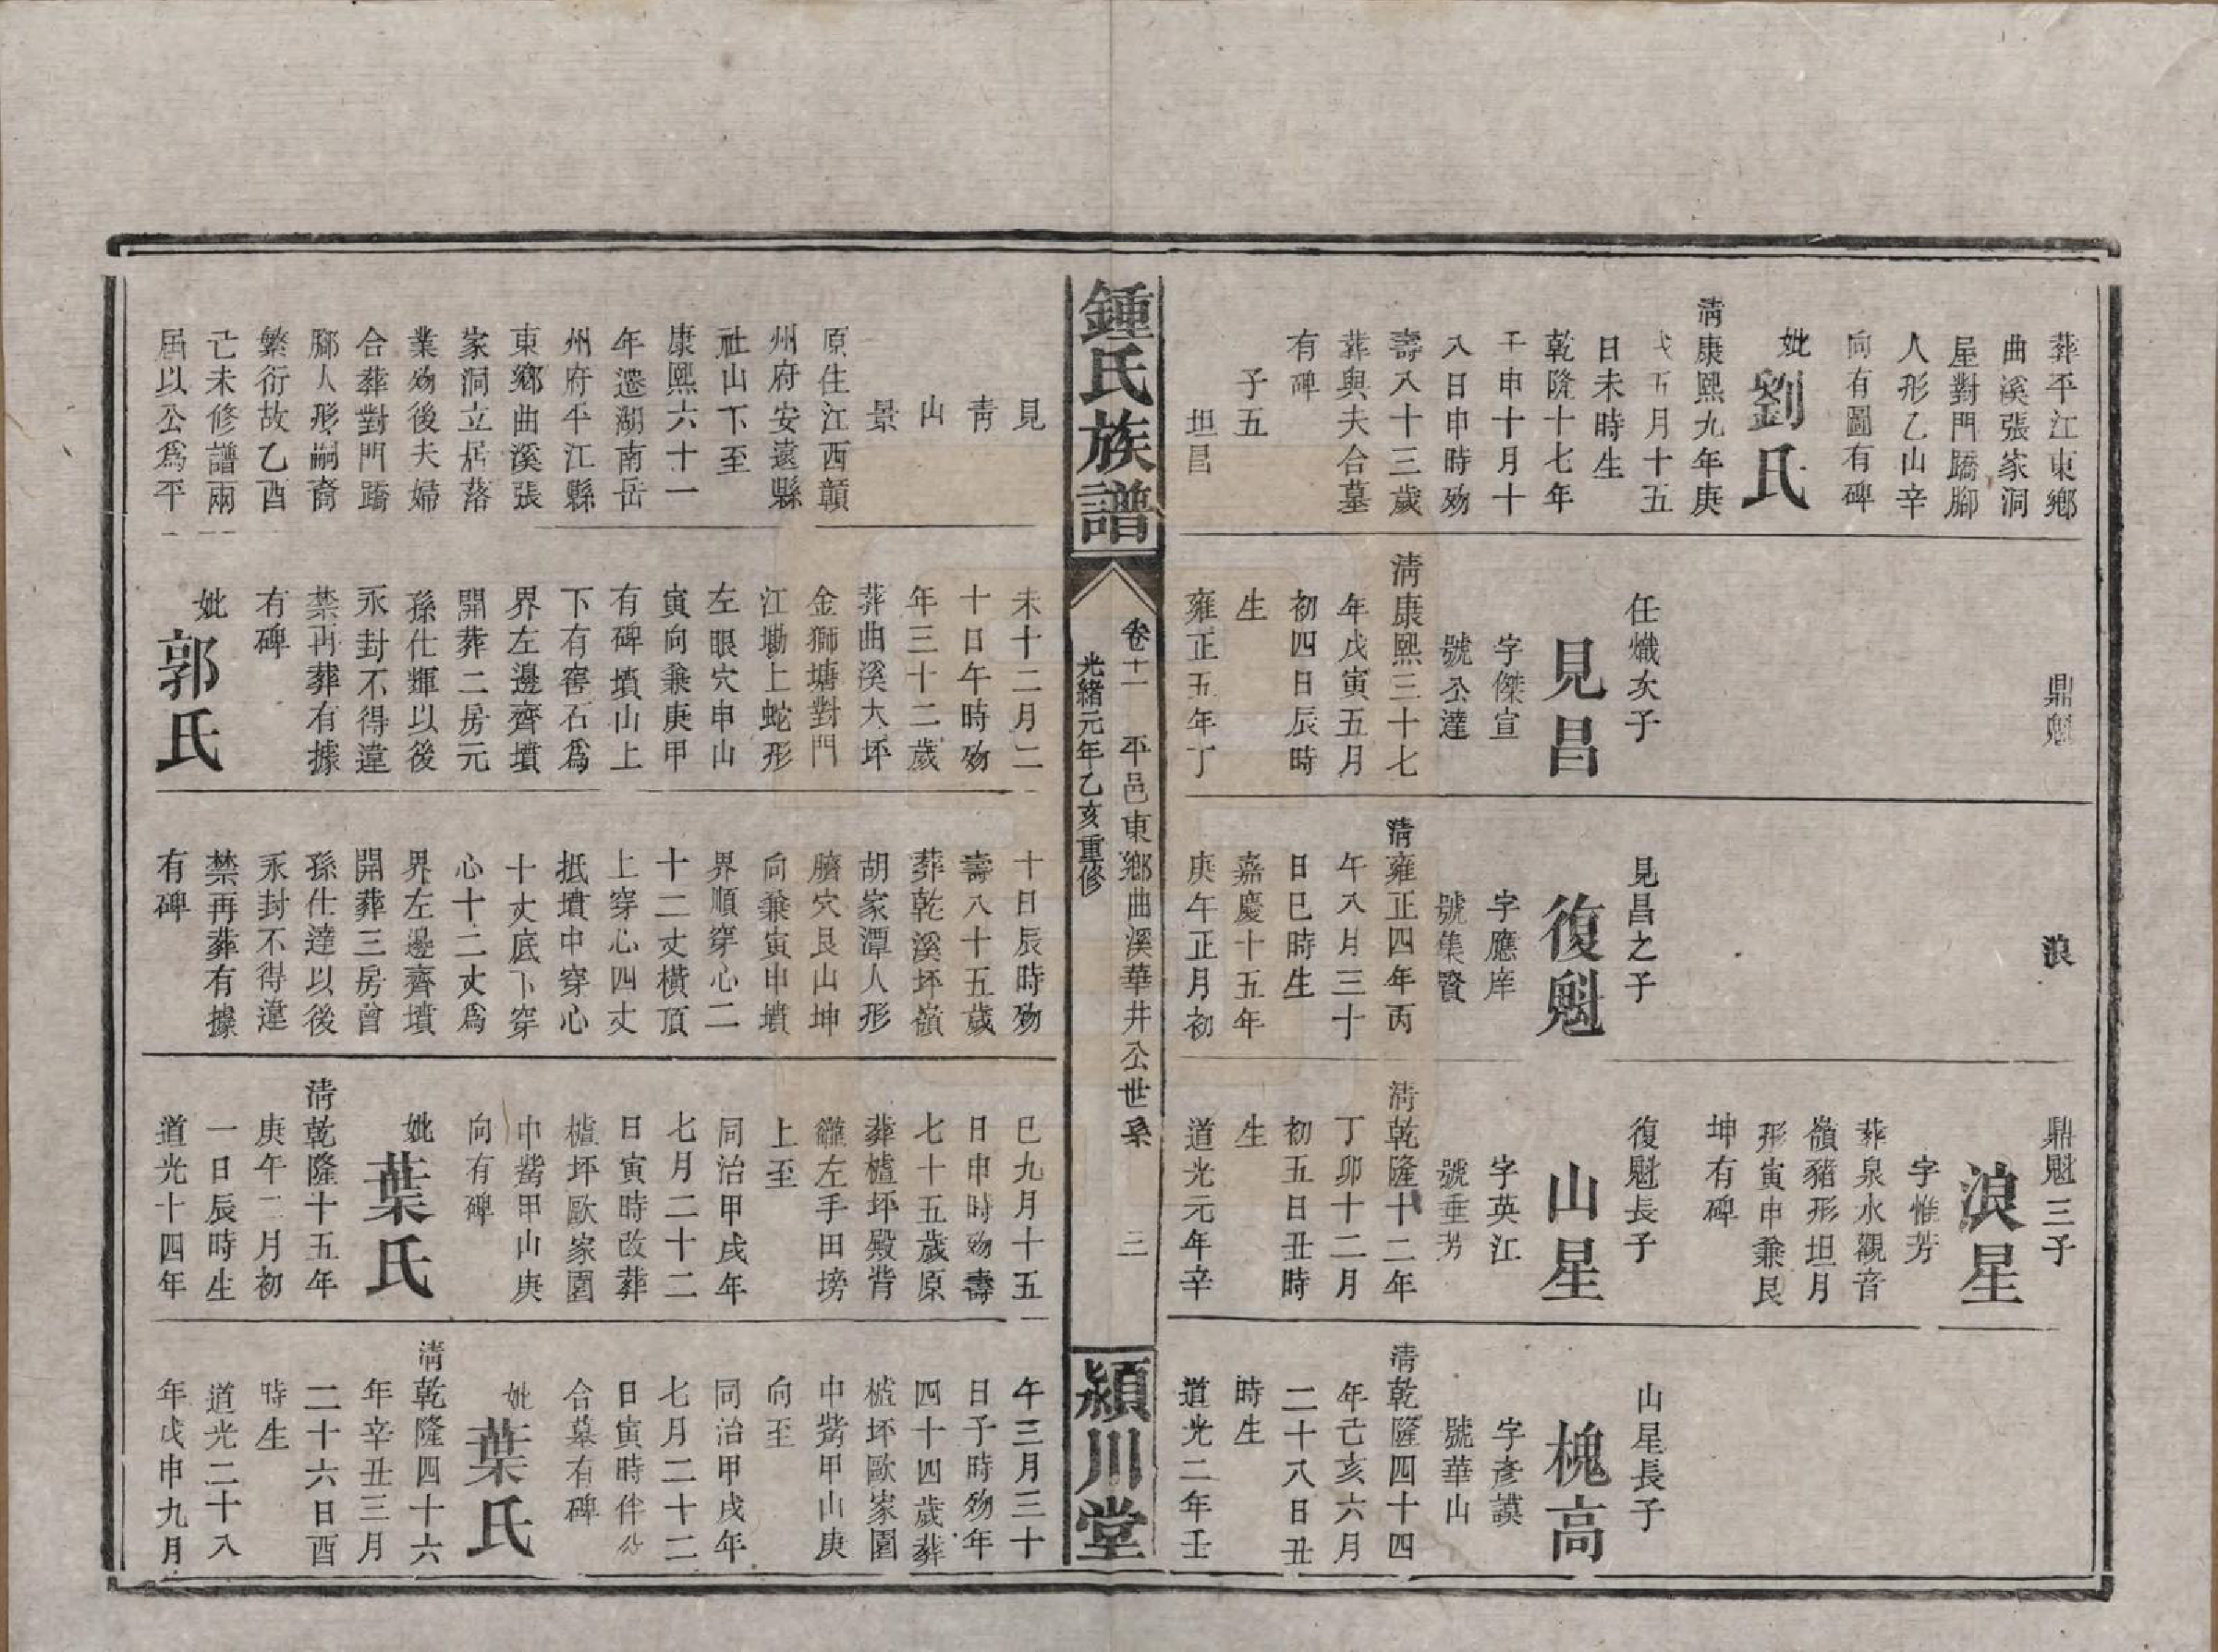 葬平江東鄉
曲溪張家洞
屋對門蹻脚
人形乙山辛
向有圖有碑
妣劉氏
清康熙九年庚
戌五月十五
日未時生
乾隆十七年
壬申十月十
八日申時歿
壽八十三歲
葬與夫合墓
有碑
子五
坦昌
見
青
山
景
原住江西贛
州府安遠縣
社山下至
康熙六十一
年遷湖南岳
州府平江縣
東鄉曲溪張
家洞立居落
業歿後夫婦
合葬對門蹻
脚人形嗣裔
繁衍故乙酉
己未修譜兩
屆以公爲平
鼎魁
任熾次子
見昌
字傑宣
號公達
清康熙三十七
年戊寅五月
初四日辰時
生
雍正五年丁
未十二月二
十日午時歿
年三十二歲
葬曲溪大坏
金獅塘對門
江墈上蛇形
左眼穴申山
寅向兼庚甲
有碑墳山上
下有窖石爲
界左邊齊墳
開葬二房元
孫仕輝以後
永封不得違
禁再葬有據
有碑
妣郭氏
浪
見昌之子
復魁
字應庠
號集賢
清雍正四年丙
午八月三十
日巳時生
嘉慶十五年
庚午正月初
十日辰時歿
壽八十五歲
葬乾溪坏嶺
胡家潭人形
臍穴艮山坤
向兼寅申墳
界順穿心二
十二丈橫頂
上穿心四丈
抵墳中穿心
十丈底下穿
心十二丈爲
界左邊齊墳
開葬三房曾
孫仕達以後
永封不得違
禁再葬有據
有碑
鼎魁三子
浪星
字惟芳
葬泉水觀音
嶺豬形坦月
形寅申兼艮
坤有碑
復魁長子
山星
字英江
號垂芳
清乾隆十二年
丁卯十二月
初五日丑時
生
道光元年辛
巳九月十五
日申時歿壽
七十五歲原
葬櫨坏殿背
雞左手田塝
上至
同治甲戌年
七月二十二
日寅時改葬
櫨坏歐家園
中嘴甲山庚
向有碑
妣葉氏
清乾隆十五年
庚午二月初
一日辰時生
道光十四年
山星長子
槐高
字彥謨
號華山
清乾隆四十四
年己亥六月
二十八日丑
時生
道光二年壬
午三月三十
日子時歿年
四十四歲葬
櫨坏歐家園
中嘴甲山庚
向至
同治甲戌年
七月二十二
日寅時伴公
合墓有碑
妣葉氏
清乾隆四十六
年辛丑三月
二十六日酉
時生
道光二十八
年戊申九月
鍾氏族譜
卷十一 平邑東鄉曲溪華井公世系 三
光緒元年乙亥重修
潁川堂